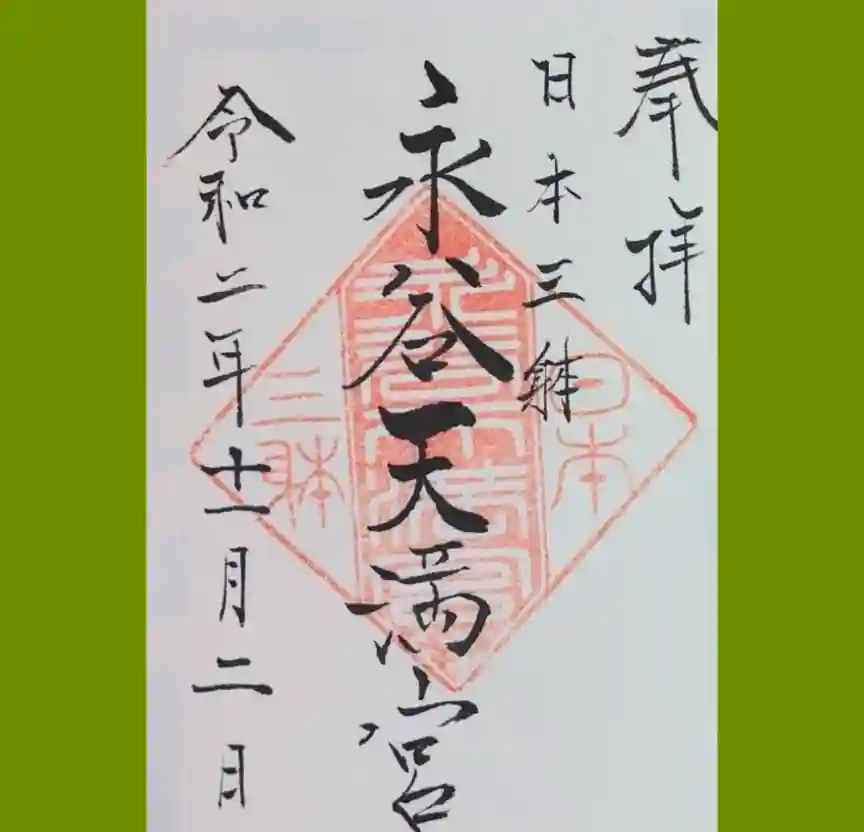 奉拝
日本三躰
永谷天満宮
令和二年十一月二日
日本
三躰